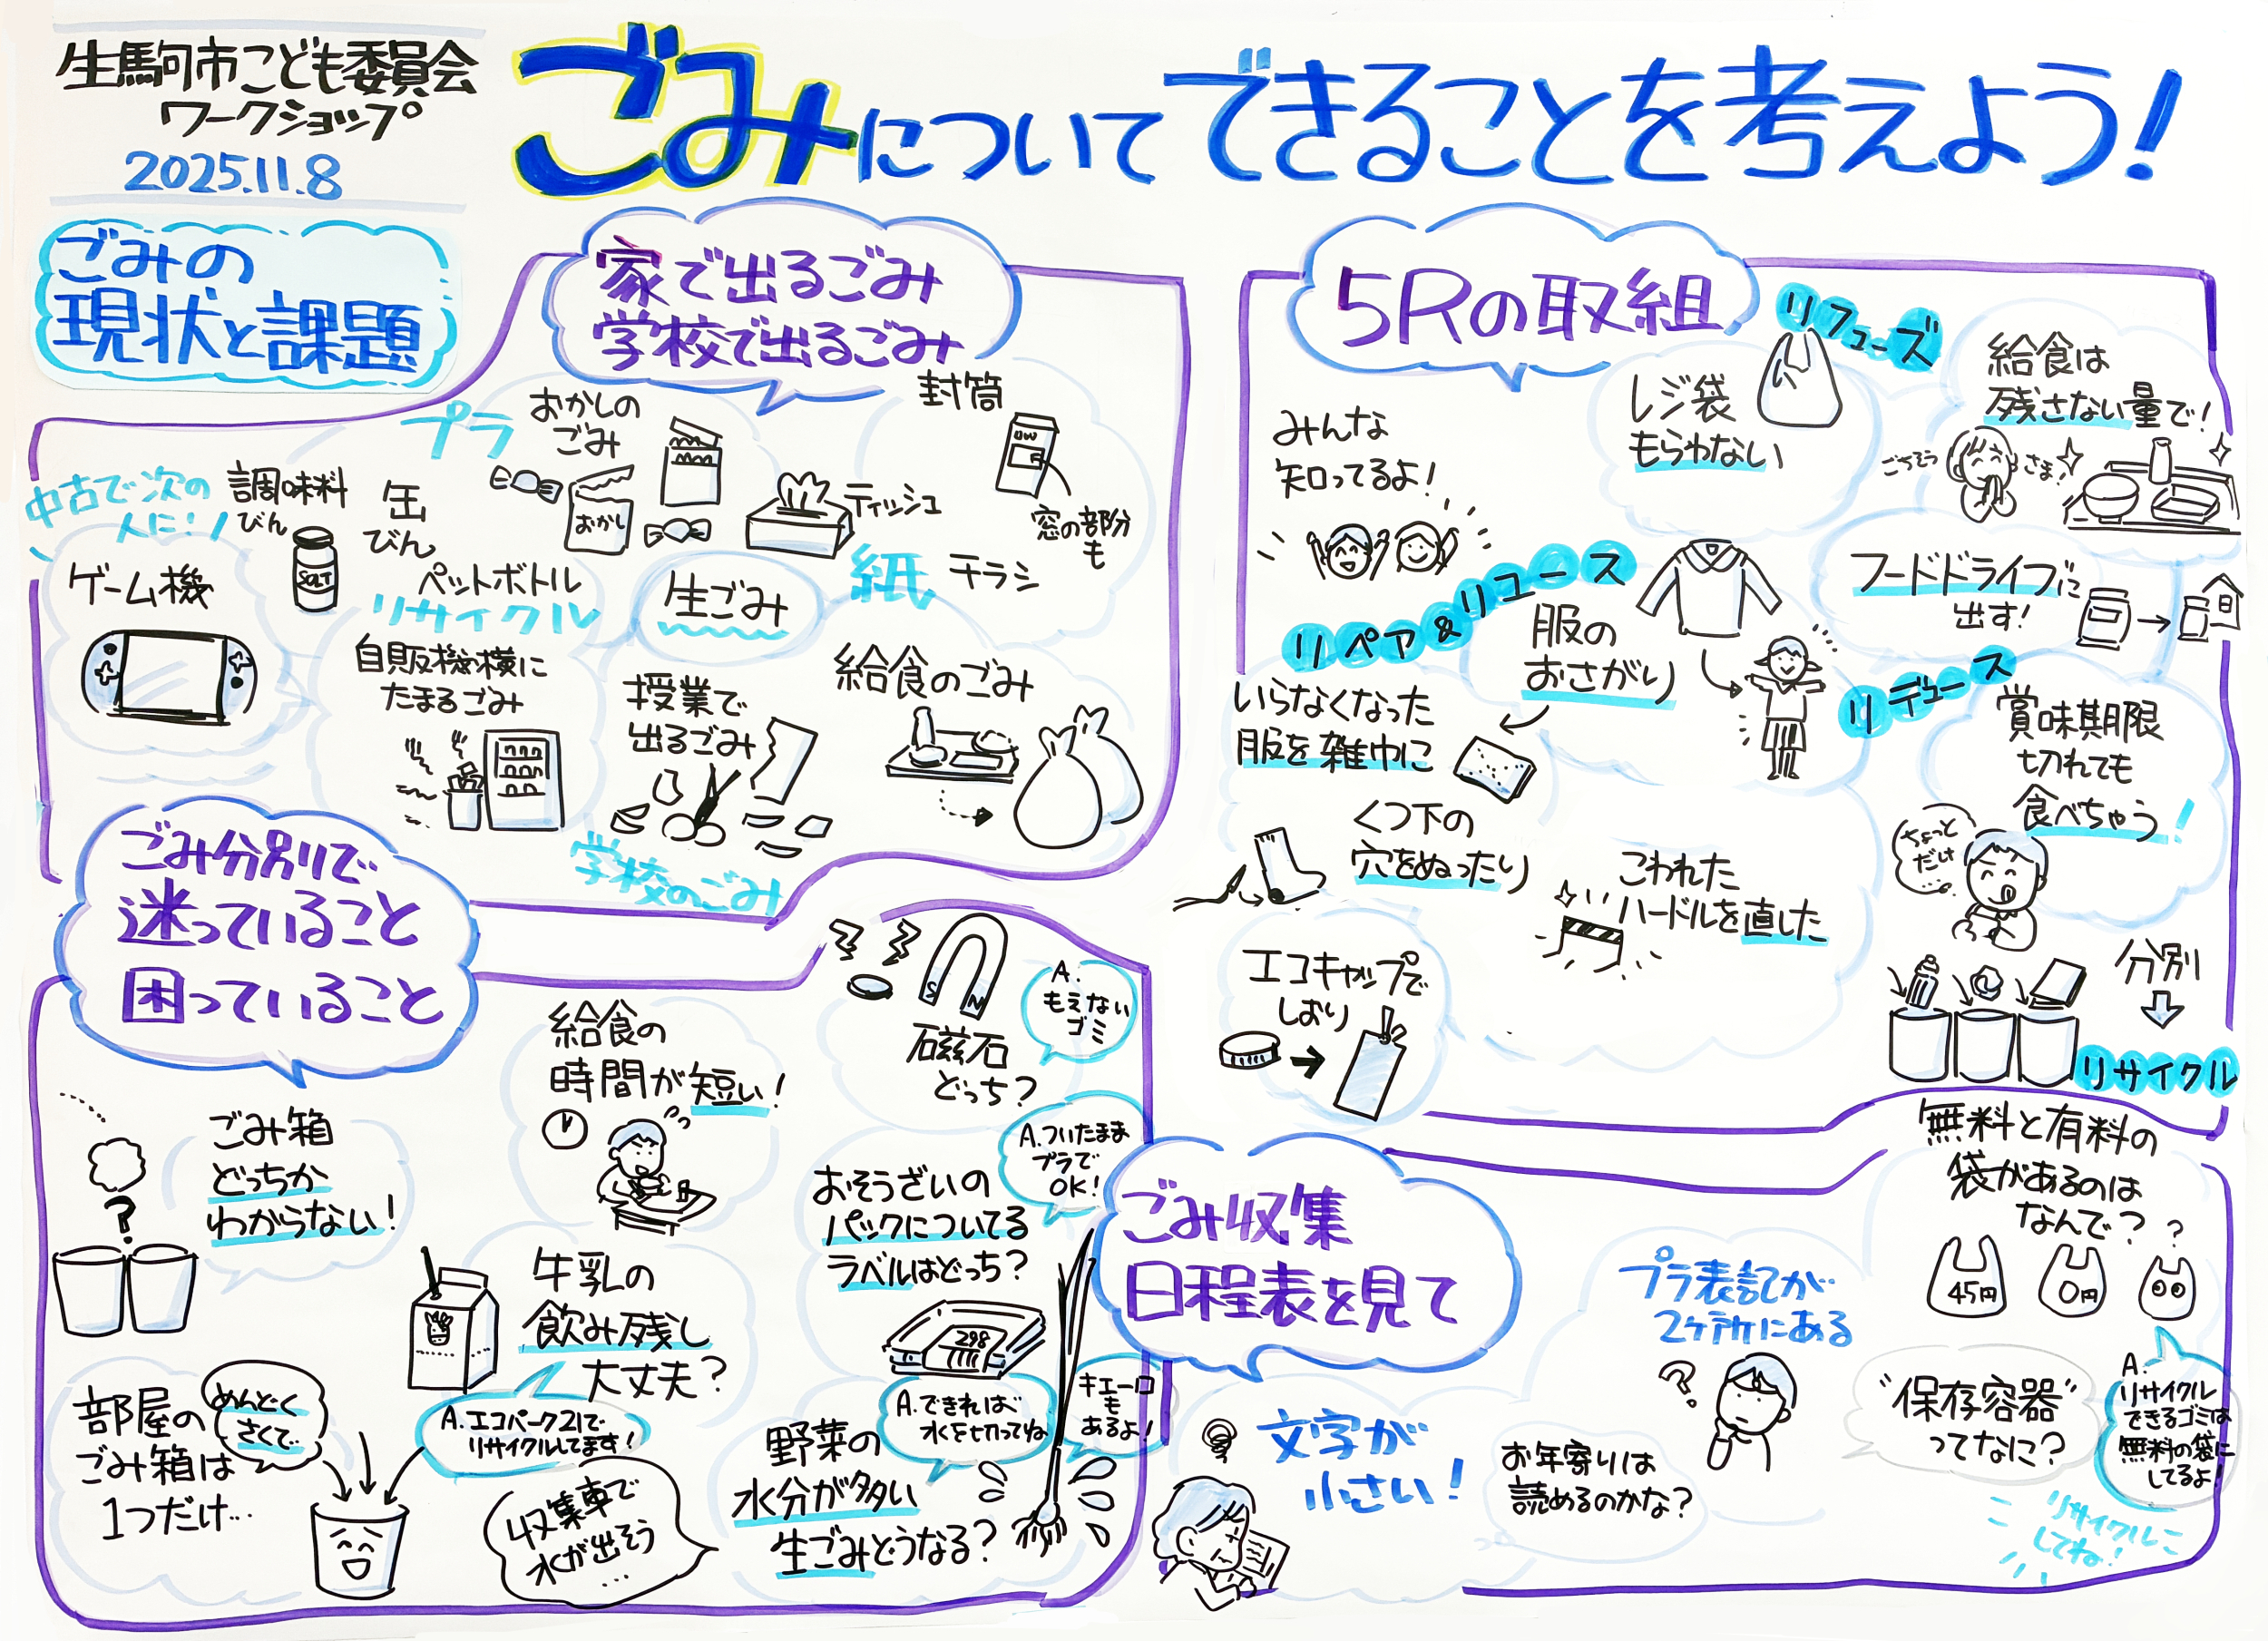 生駒市こども委員会
ワークショップ
2025.11.8
ごみについてできることを考えよう!
ごみの
現状と課題
家で出るごみ
学校で出るごみ
プラ
おかしの
ごみ
おかし
封筒
窓の部分
も
ティッシュ
紙
チラシ
中古で次の
人に!
ゲーム機
調味料
びん
SALT
缶
びん
ペットボトル
リサイクル
生ごみ
自販機横に
たまるごみ
授業で
出るごみ
給食のごみ
学校のごみ
5Rの取組
みんな
知ってるよ!
リフューズ
レジ袋
もらわない
給食は
残さない量で!
ごちそう
さま!
フードドライブに
出す!
リペア&リユース
服の
おさがり
いらなくなった
服を雑巾に
くつ下の
穴をぬったり
こわれた
ハードルを直した
エコキャップで
しおり
リデュース
賞味期限
切れても
食べちゃう!
ちょっと
だけ
分別
リサイクル
ごみ分別で
迷っていること
困っていること
ごみ箱
どっちか
わからない!
給食の
時間が短い!
磁石
どっち?
S N
A.
もえない
ゴミ
おそうざいの
パックについてる
ラベルはどっち?
298
A.ついたまま
プラで
OK!
牛乳の
飲み残し
大丈夫?
A.エコパーク21で
リサイクルしてます!
部屋の
ごみ箱は
1つだけ…
めんどく
さくて…
収集車で
水が出そう
…
野菜の
水分が多い
生ごみどうなる?
A.できれば、
水を切ってね
キエーロ
も
あるよ!
ごみ収集
日程表を見て
文字が
小さい!
お年寄りは
読めるのかな?
プラ表記が
2ヶ所にある
無料と有料の
袋があるのは
なんで?
45円
0円
?
"保存容器"
ってなに?
A.
リサイクル
できるゴミは
無料の袋に
してるよ!
リサイクルに
してね!